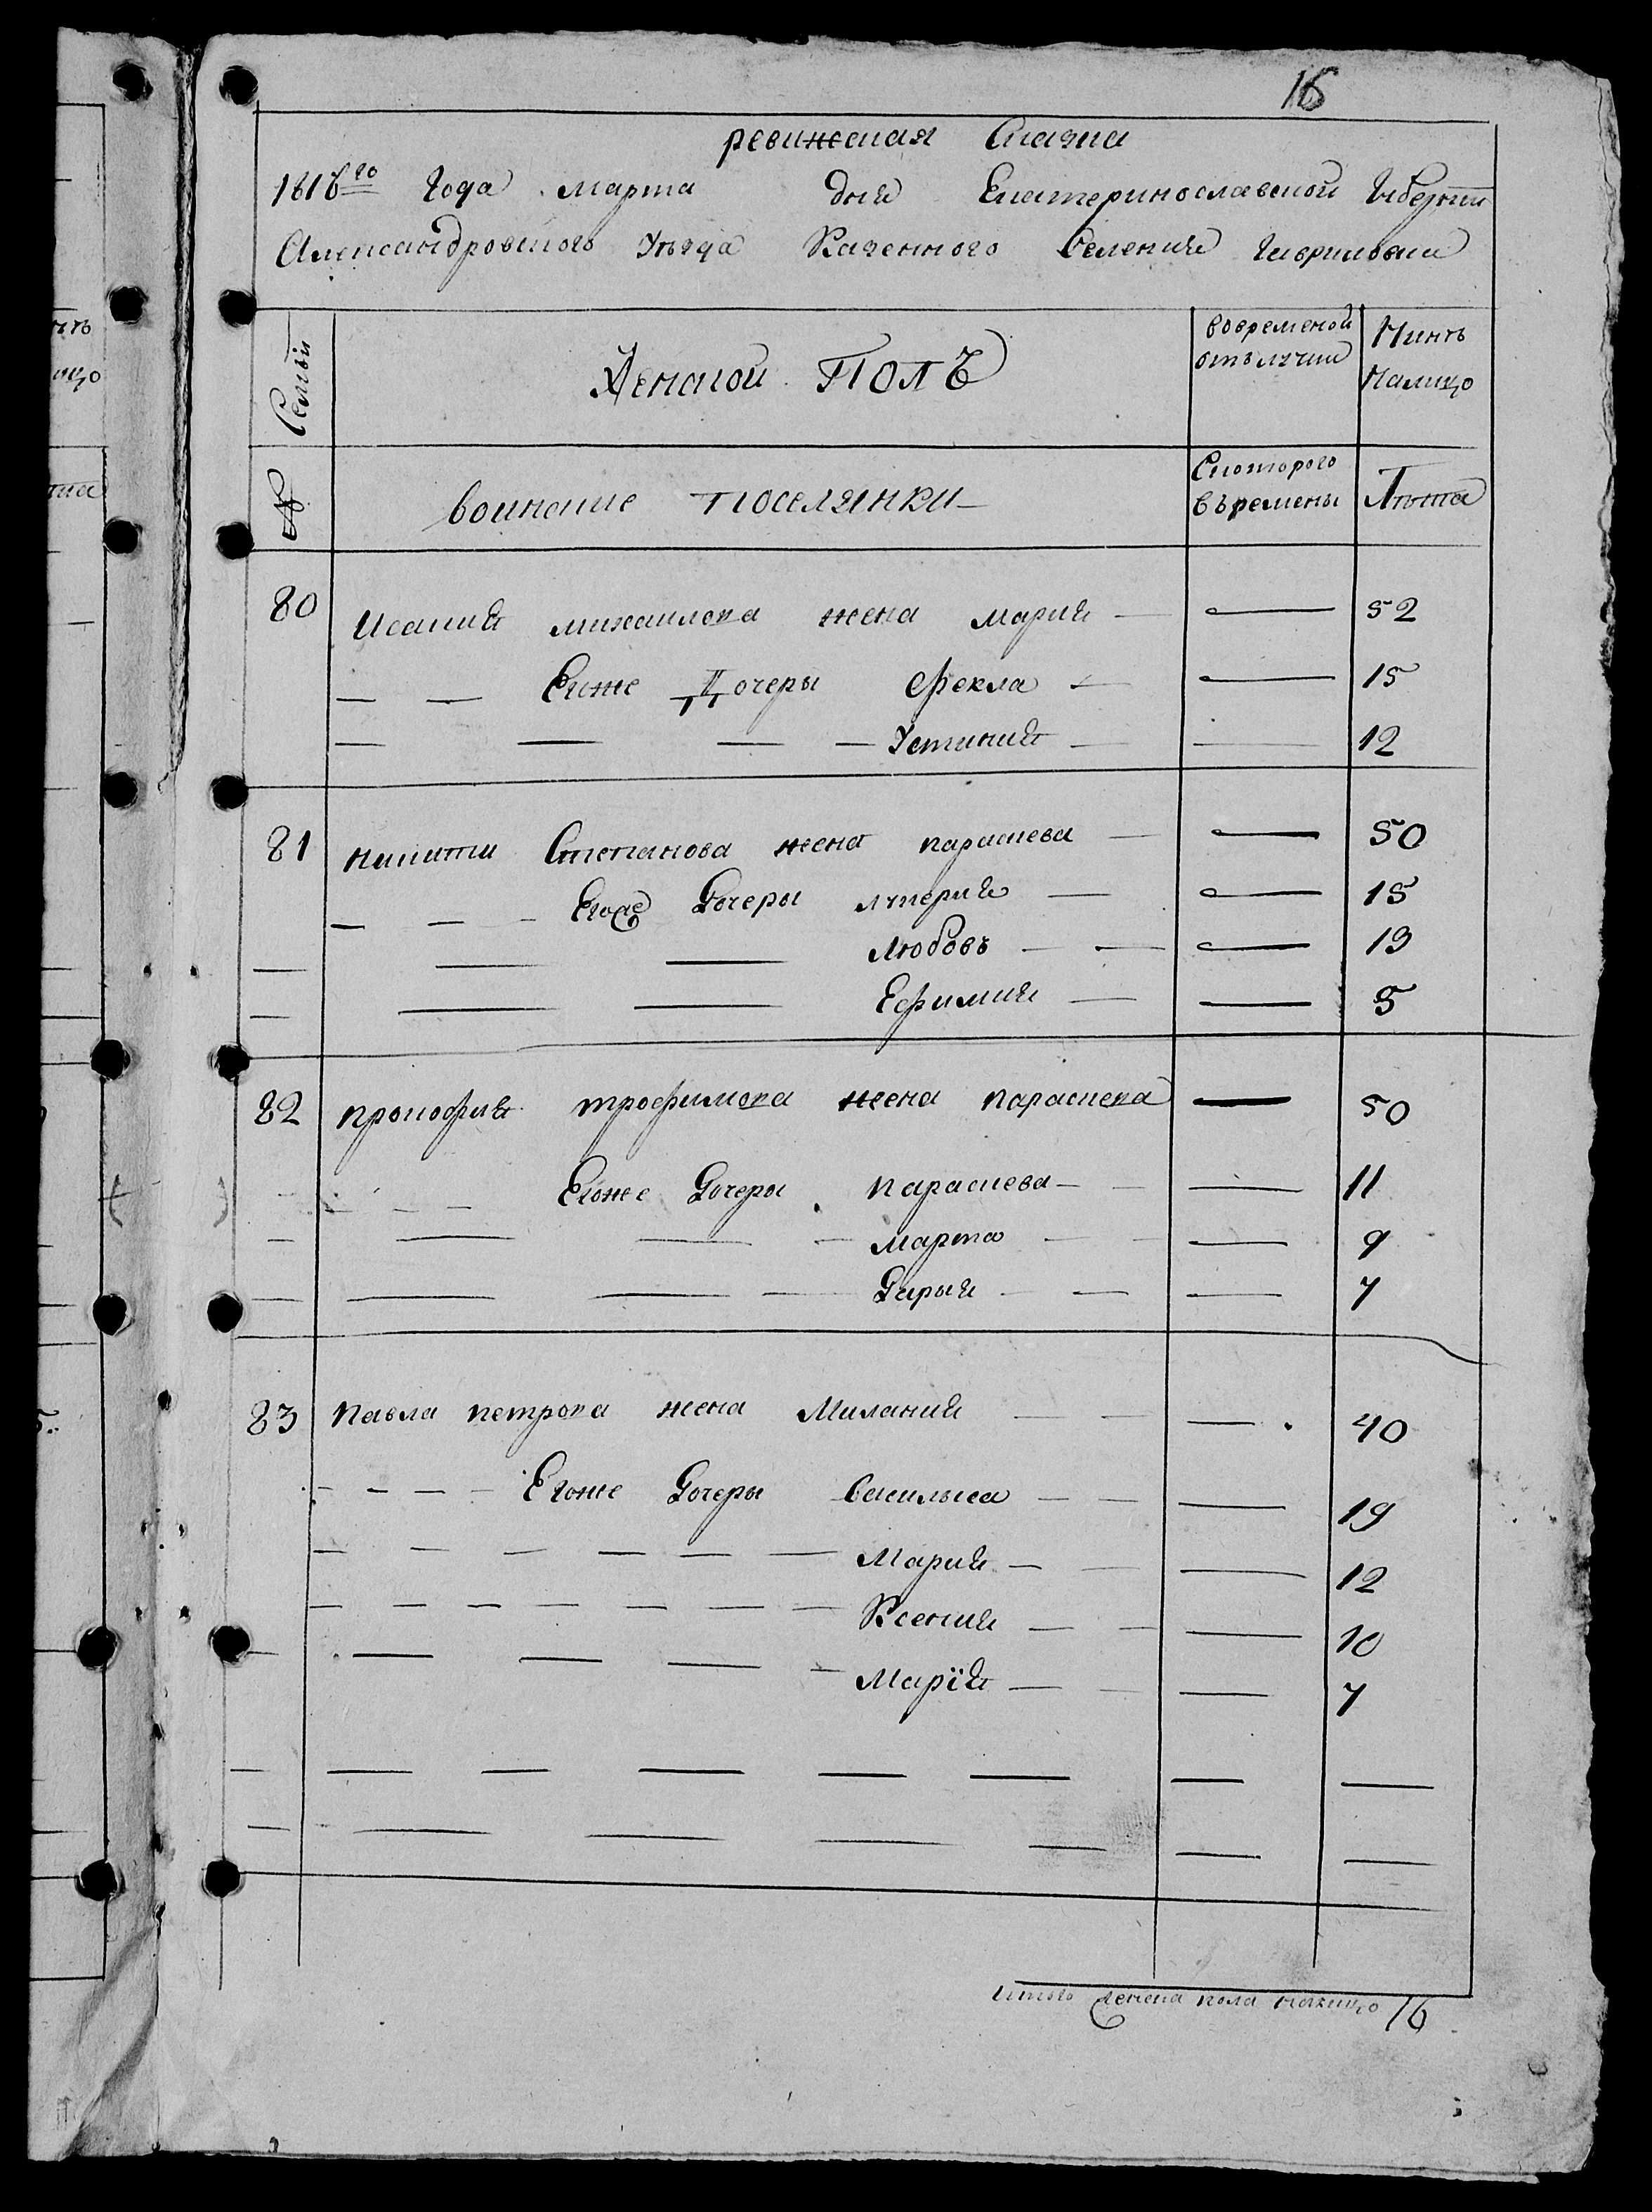 16
ревижская Сказка
1816го Года Марта дня Екатеринославской Губернии
Александровского Уѣзда Казенного Селения Гавриловки
Семьи
Женской ПОЛЪ
вовременой
отълучки
Нинѣ
Налицо
№
воинские поселянки
Скоторого
въремены
Лѣта
80 Исакия михаилова жена Мария — — 52
— — Егоже Дочеры Фекла — — 15
— — — — Устиния — — 12
81 никиты Степанова жена параскева — — 50
— — — Егоже Дочеры лукерия — — 15
— — — Любовъ — — — 13
— — — Ефимия — — 5
82 прокофия трофимова жена параскева — 50
— — — — Егоже Дочеры параскева — — — 11
— — — — марта — — — 9
— — — — Дария — — — 7
83 павла петрова жена Милания — — — 40
— — — — Егоже Дочеры василиса — — — 19
— — — — — — Мария — — — 12
— — — — — — — Ксения — — — 10
— — — — — Марія — — — 7
— — — — — — — —
— — — — — — —
итого женска пола налицо 16